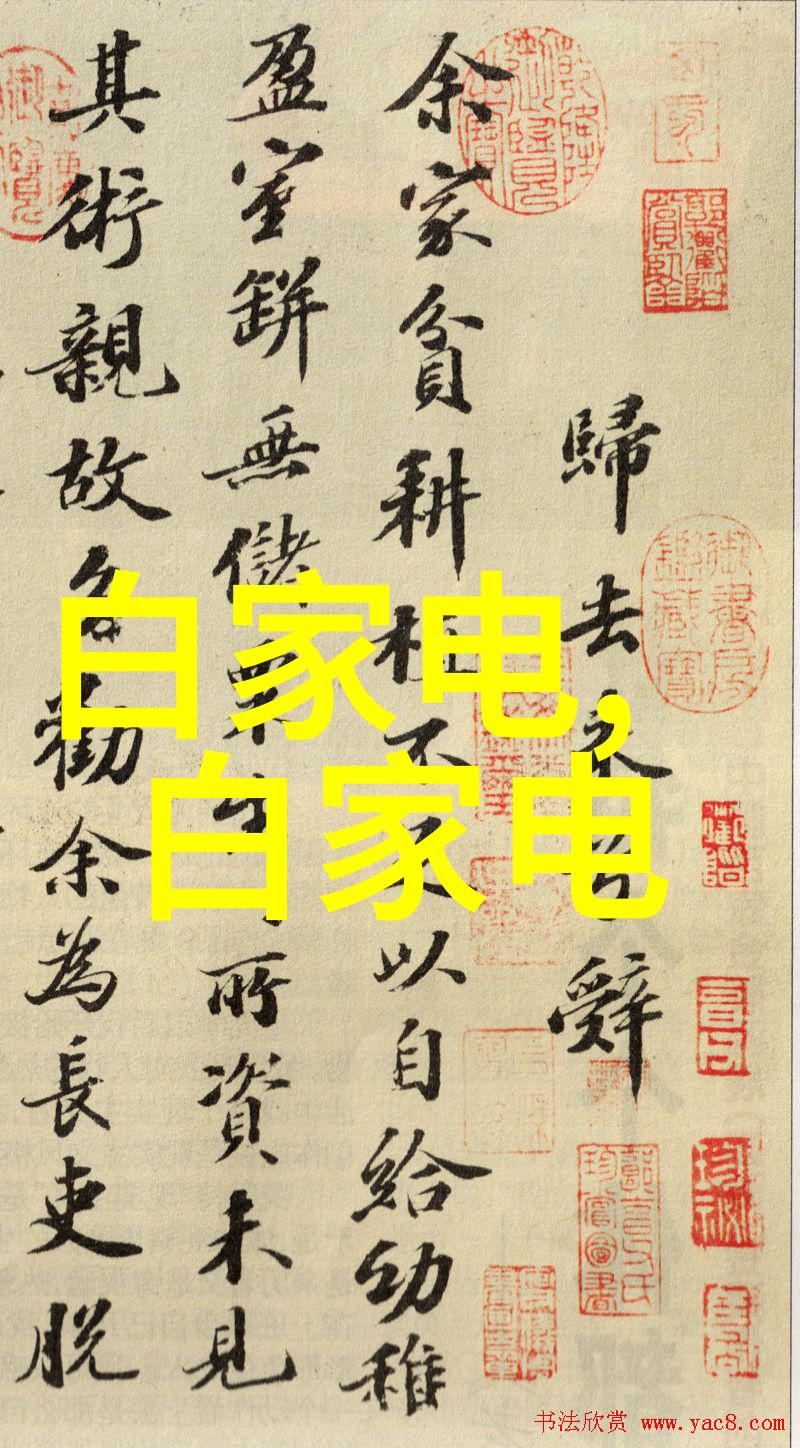 歸去来兮辭
余家貧耕植不足以自給幼稚
盈室缾無儲粟生生所資未見
其術親故多勸余為長吏脱
白家电,
白家电
乾隆御覽之寶
御書房鑑藏寶
书法欣赏 www.yac8.com